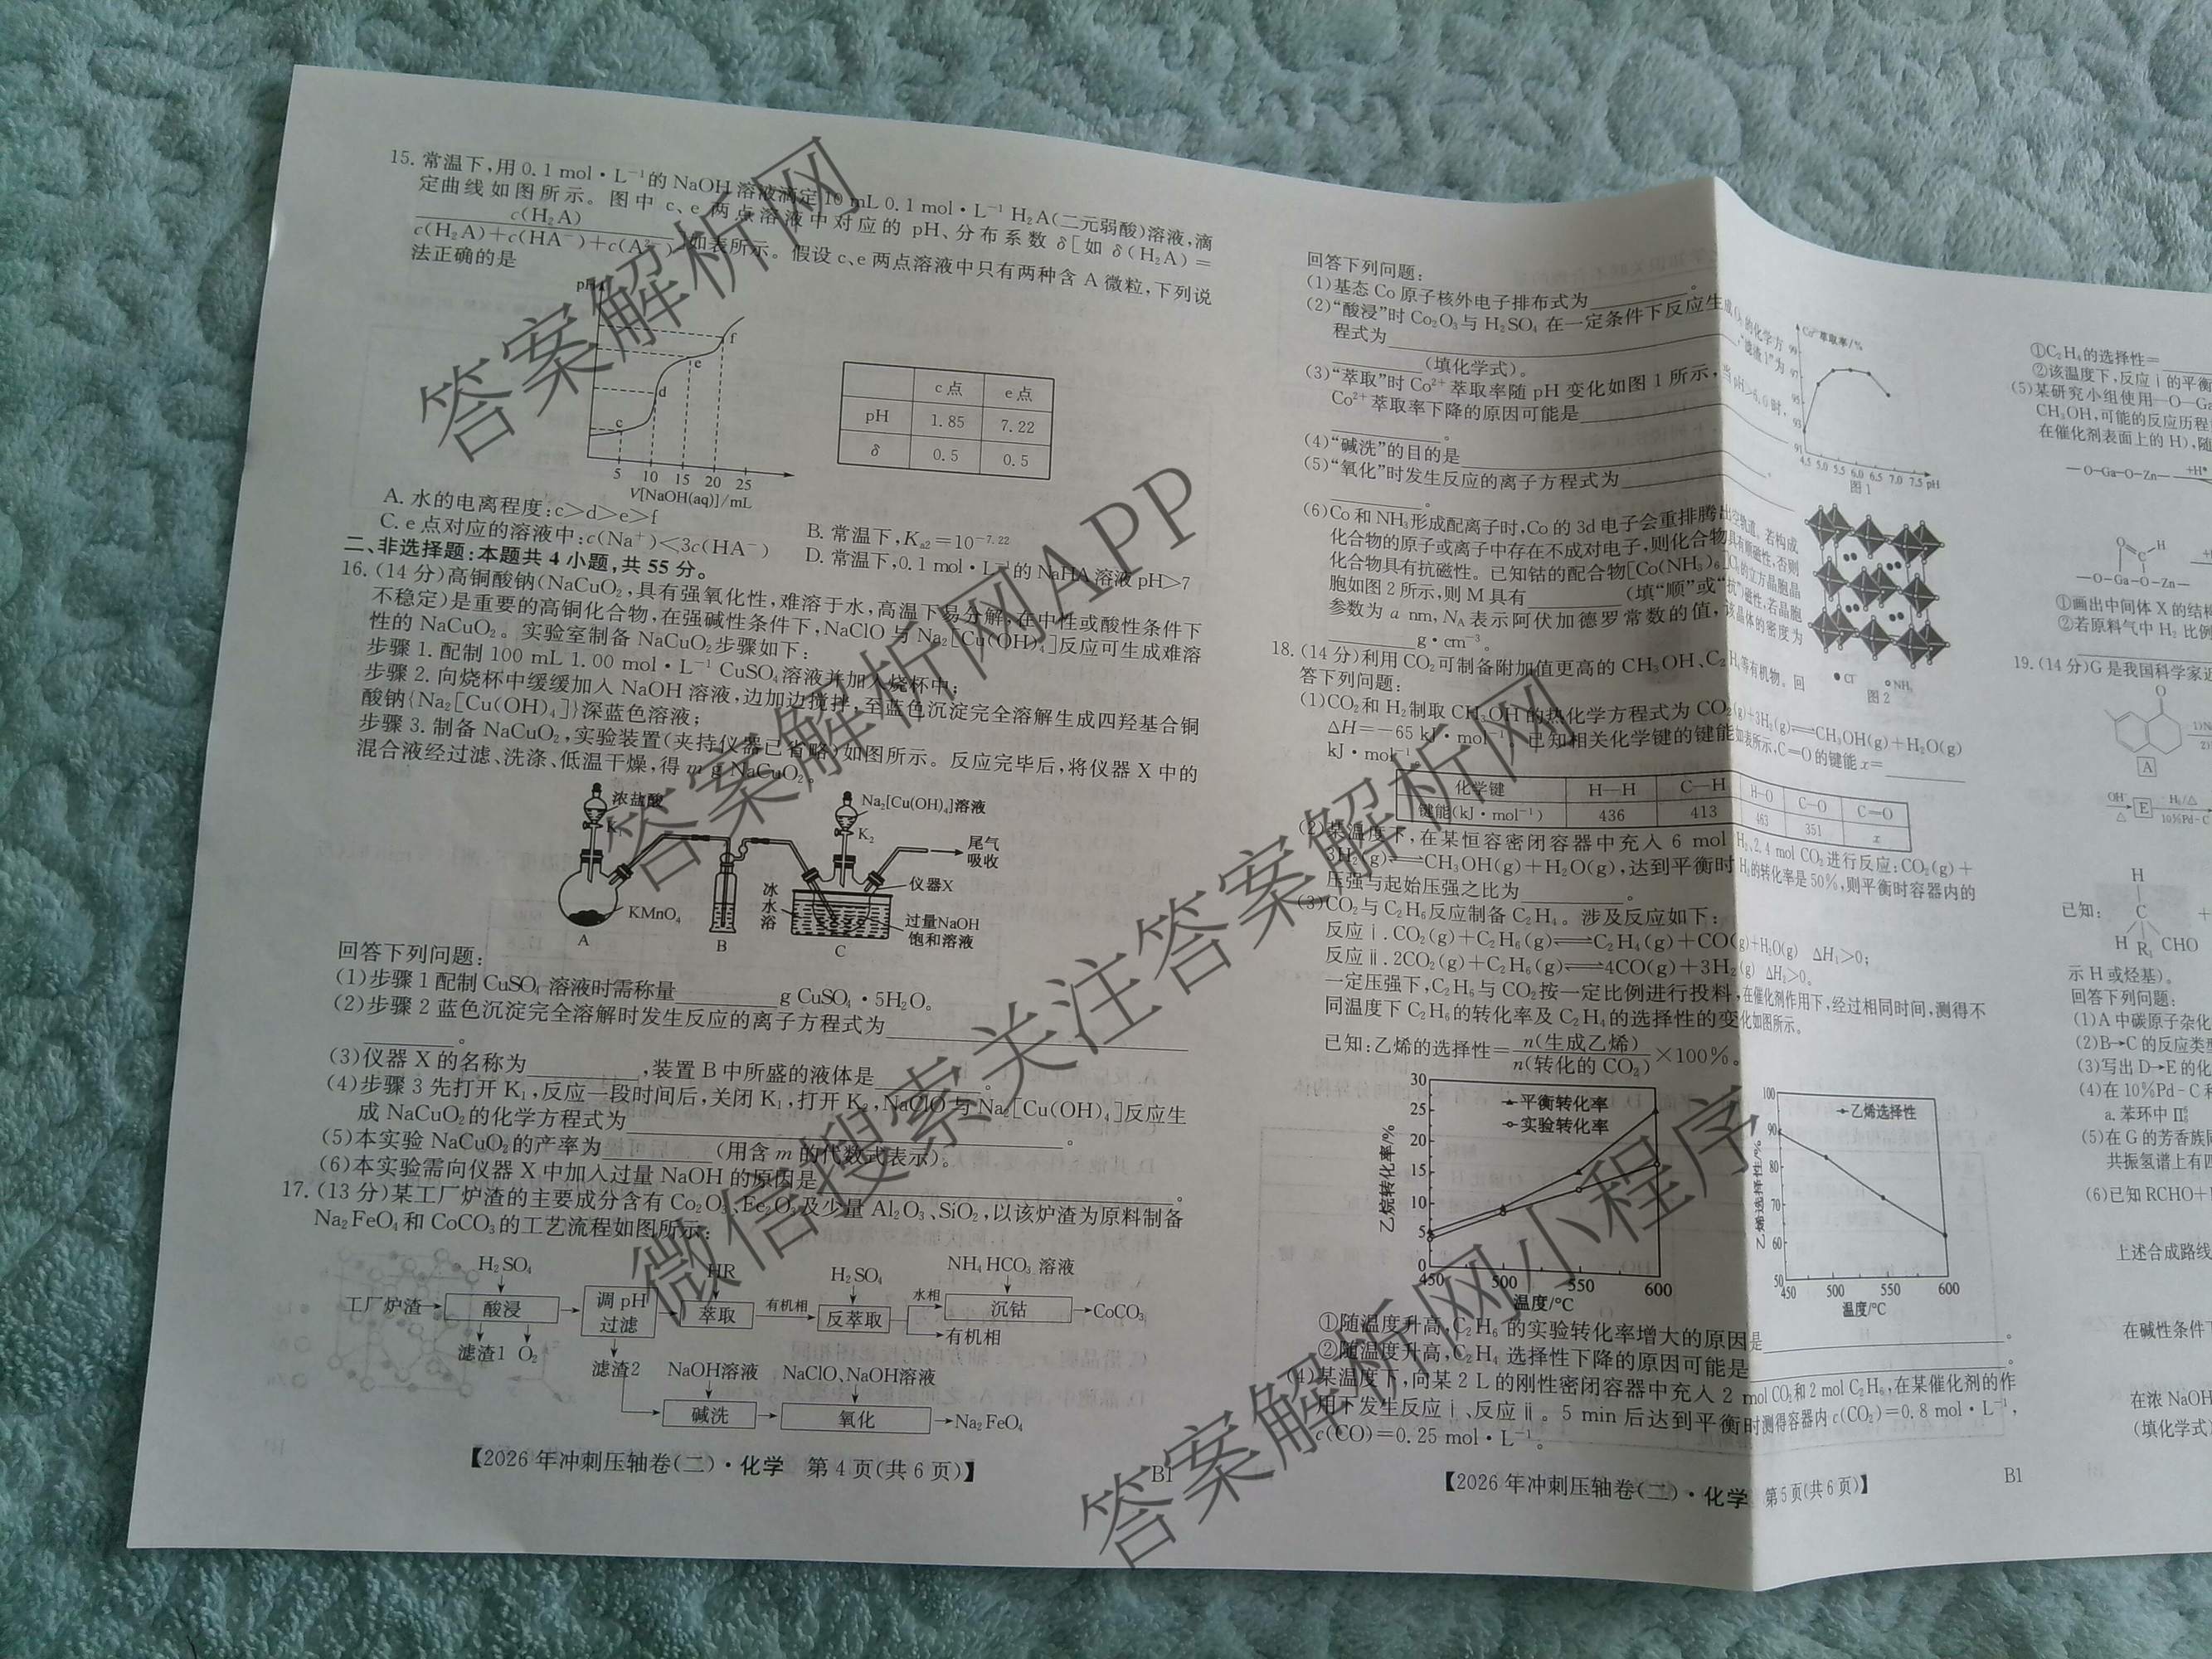 15. 常温下,用 0.1 mol·L⁻¹的 NaOH 溶液滴定 10 mL 0.1 mol·L⁻¹ H₂A(二元弱酸)溶液,滴
定曲线如图所示。图中 c、e 两点溶液中对应的 pH、分布系数 δ[如 δ(H₂A)=
c(H₂A)
c(H₂A)+c(HA⁻)+c(A²⁻)
]如表所示。假设 c、e 两点溶液中只有两种含 A 微粒,下列说
法正确的是
pH
f
e
d
c
5 10 15 20 25
V[NaOH(aq)]/mL
c点 e点
pH 1.85 7.22
δ 0.5 0.5
A. 水的电离程度:c>d>e>f
B. 常温下,Kₐ₂=10⁻⁷·²²
C. e 点对应的溶液中:c(Na⁺)<3c(HA⁻)
D. 常温下,0.1 mol·L⁻¹的 NaHA 溶液 pH>7
二、非选择题:本题共 4 小题,共 55 分。
16. (14 分)高铜酸钠(NaCuO₂,具有强氧化性,难溶于水,高温下易分解,在中性或酸性条件下
不稳定)是重要的高铜化合物,在强碱性条件下,NaClO 与 Na₂[Cu(OH)₄]反应可生成难溶
性的 NaCuO₂。实验室制备 NaCuO₂步骤如下:
步骤 1. 配制 100 mL 1.00 mol·L⁻¹ CuSO₄溶液并加入烧杯中;
步骤 2. 向烧杯中缓缓加入 NaOH 溶液,边加边搅拌,至蓝色沉淀完全溶解生成四羟基合铜
酸钠{Na₂[Cu(OH)₄]}深蓝色溶液;
步骤 3. 制备 NaCuO₂,实验装置(夹持仪器已省略)如图所示。反应完毕后,将仪器 X 中的
混合液经过滤、洗涤、低温干燥,得 m g NaCuO₂。
浓盐酸
K₁
Na₂[Cu(OH)₄]溶液
K₂
尾气
吸收
仪器X
冰水浴
KMnO₄
过量NaOH
饱和溶液
A
B
C
回答下列问题:
(1)步骤 1 配制 CuSO₄ 溶液时需称量 g CuSO₄·5H₂O。
(2)步骤 2 蓝色沉淀完全溶解时发生反应的离子方程式为
。
(3)仪器 X 的名称为 ,装置 B 中所盛的液体是 。
(4)步骤 3 先打开 K₁,反应一段时间后,关闭 K₁,打开 K₂,NaClO 与 Na₂[Cu(OH)₄]反应生
成 NaCuO₂的化学方程式为 。
(5)本实验 NaCuO₂的产率为 (用含 m 的代数式表示)。
(6)本实验需向仪器 X 中加入过量 NaOH 的原因是 。
17. (13 分)某工厂炉渣的主要成分含有 Co₂O₃、Fe₂O₃及少量 Al₂O₃、SiO₂,以该炉渣为原料制备
Na₂FeO₄和 CoCO₃的工艺流程如图所示:
H₂SO₄ HR H₂SO₄ NH₄HCO₃ 溶液
工厂炉渣 酸浸 调 pH 过滤 萃取 有机相 反萃取 水相 沉钴 CoCO₃
有机相
滤渣1 O₂
滤渣2 NaOH溶液 NaClO、NaOH溶液
碱洗 氧化 Na₂FeO₄
【2026 年冲刺压轴卷(二)·化学 第 4 页(共 6 页)】 B1
回答下列问题:
(1)基态 Co 原子核外电子排布式为 。
(2)“酸浸”时 Co₂O₃与 H₂SO₄ 在一定条件下反应生成 O₂ 的化学方
程式为 ,“滤渣 1”为
(填化学式)。
(3)“萃取”时 Co²⁺ 萃取率随 pH 变化如图 1 所示,当 pH>6.0 时,
Co²⁺ 萃取率下降的原因可能是
。
(4)“碱洗”的目的是 。
(5)“氧化”时发生反应的离子方程式为
。
Co²⁺萃取率/%
99
97
95
93
91
4.5 5.0 5.5 6.0 6.5 7.0 7.5 pH
图 1
(6)Co 和 NH₃形成配离子时,Co 的 3d 电子会重排腾出空轨道。若构成
化合物的原子或离子中存在不成对电子,则化合物具有顺磁性,否则
化合物具有抗磁性。已知钴的配合物[Co(NH₃)₆]Clₓ的立方晶胞晶
胞如图 2 所示,则 M 具有 (填“顺”或“抗”)磁性,若晶胞
参数为 a nm,Nₐ 表示阿伏加德罗常数的值,该晶体的密度为
g·cm⁻³。
Cl⁻ NH₃
图 2
18. (14 分)利用 CO₂可制备附加值更高的 CH₃OH、C₂H₄等有机物。回
答下列问题:
(1)CO₂和 H₂制取 CH₃OH 的热化学方程式为 CO₂(g)+3H₂(g)⇌CH₃OH(g)+H₂O(g)
ΔH=−65 kJ·mol⁻¹。已知相关化学键的键能如表所示,C=O 的键能 x=
kJ·mol⁻¹。
化学键 H—H C—H H—O C—O C=O
键能(kJ·mol⁻¹) 436 413 463 351 x
(2)某温度下,在某恒容密闭容器中充入 6 mol H₂、2.4 mol CO₂进行反应:CO₂(g)+
3H₂(g)⇌CH₃OH(g)+H₂O(g),达到平衡时 H₂的转化率是50%,则平衡时容器内的
压强与起始压强之比为 。
(3)CO₂与 C₂H₆反应制备 C₂H₄。涉及反应如下:
反应ⅰ.CO₂(g)+C₂H₆(g)⇌C₂H₄(g)+CO(g)+H₂O(g) ΔH₁>0;
反应ⅱ.2CO₂(g)+C₂H₆(g)⇌4CO(g)+3H₂(g) ΔH₂>0。
一定压强下,C₂H₆与 CO₂按一定比例进行投料,在催化剂作用下,经过相同时间,测得不
同温度下 C₂H₆的转化率及 C₂H₄的选择性的变化如图所示。
已知:乙烯的选择性=n(生成乙烯)/n(转化的 CO₂)×100%。
乙烷转化率/%
30
25
20
15
10
5
0
平衡转化率
实验转化率
450 500 550 600
温度/℃
乙烯选择性/%
100
90
80
70
60
50
乙烯选择性
450 500 550 600
温度/℃
①随温度升高,C₂H₆ 的实验转化率增大的原因是 。
②随温度升高,C₂H₄ 选择性下降的原因可能是 。
(4)某温度下,向某 2 L 的刚性密闭容器中充入 2 mol CO₂和 2 mol C₂H₆,在某催化剂的作
用下发生反应ⅰ、反应ⅱ。5 min 后达到平衡时测得容器内 c(CO₂)=0.8 mol·L⁻¹,
c(CO)=0.25 mol·L⁻¹。
【2026 年冲刺压轴卷(二)·化学 第5页(共6页)】 B1
①C₂H₄的选择性=
②该温度下,反应ⅰ的平衡
(5)某研究小组使用—O—Ga
CH₃OH,可能的反应历程
在催化剂表面上的 H),随
—O—Ga—O—Zn— +H*
O C H
—O—Ga—O—Zn—
①画出中间体 X 的结构
②若原料气中 H₂ 比例
19. (14 分)G 是我国科学家近
O
A
OH⁻ △ E H₂/△ 10%Pd-C
已知: H C H R₁ CHO +
示 H 或烃基)。
回答下列问题:
(1)A 中碳原子杂化
(2)B→C 的反应类型
(3)写出 D→E 的化
(4)在 10%Pd-C 和
a. 苯环中 Π⁶₆
(5)在 G 的芳香族同
共振氢谱上有四
(6)已知 RCHO+
上述合成路线
在碱性条件下
在浓 NaOH
(填化学式)
答案解析网
答案解析网APP
微信搜索关注答案解析网
答案解析网小程序